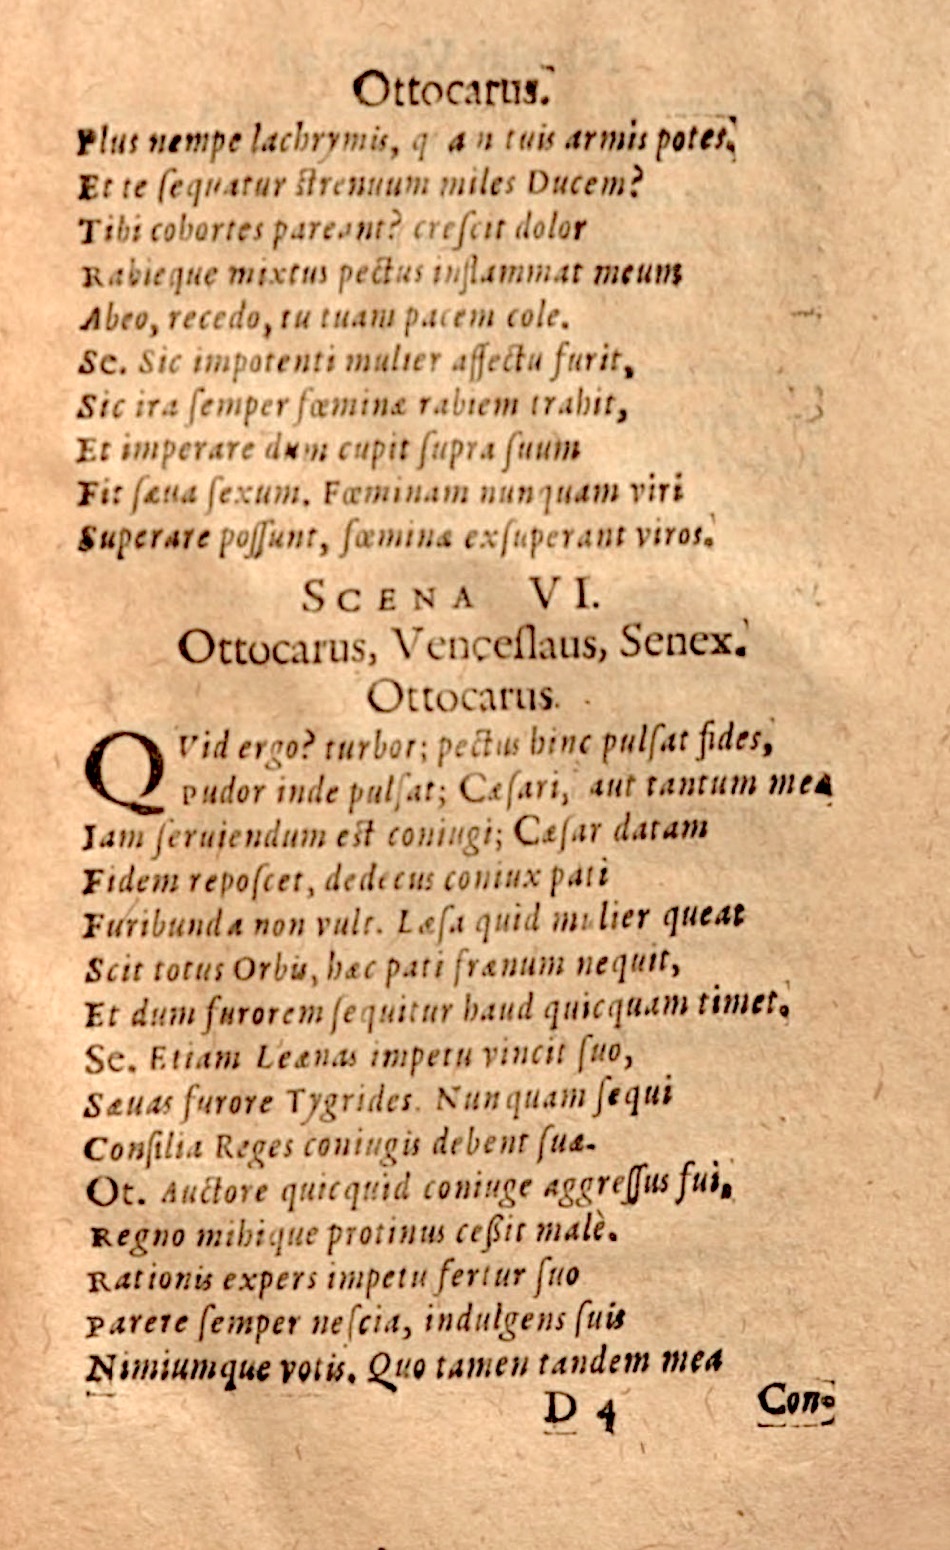 Ottocarus.
Plus nempe lachrymis, q a n tuis armis potes.
Et te ſequatur ſtrenuum miles Ducem?
Tibi cohortes pareant? creſcit dolor
Rabieque mixtus pectus inflammat meum
Abeo, recedo, tu tuam pacem cole.
Se. Sic impotenti mulier affectu furit,
Sic ira ſemper fœminæ rabiem trahit,
Et imperare dum cupit ſupra ſuum
Fit ſæua ſexum. Fœminam nunquam viri
Superare poſſunt, fœminæ exſuperant viros.
SCENA VI.
Ottocarus, Venceſlaus, Senex.
Ottocarus.
QVid ergo? turbor; pectus hinc pulſat fides,
Pudor inde pulſat; Cæſari, aut tantum meæ
Iam ſeruiendum eſt coniugi; Cæſar datam
Fidem repoſcet, dedecus coniux pati
Furibunda non vult. Læſa quid mulier queat
Scit totus Orbis, hæc pati frænum nequit,
Et dum furorem ſequitur haud quicquam timet.
Se. Etiam Leænas impetu vincit ſuo,
Sæuas furore Tygrides. Nunquam ſequi
Conſilia Reges coniugis debent ſuæ.
Ot. Auctore quicquid coniuge aggreſſus fui,
Regno mihique protinus ceßit malè.
Rationis expers impetu fertur ſuo
Parere ſemper neſcia, indulgens ſuis
Nimiumque votis. Quo tamen tandem mea
D 4 Con-